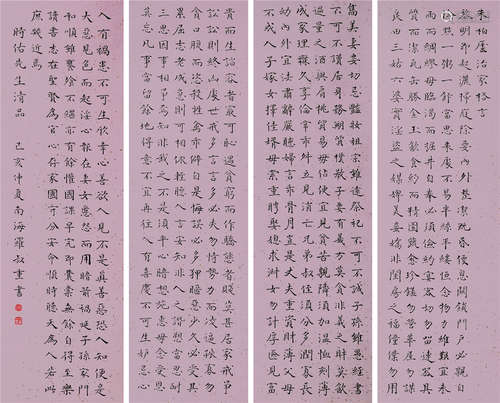 朱柏廬治家格言
黎明即起灑掃庭除要內外整潔既昏便息關鎖門戶必親自
檢點一粥一飯當思來處不易半絲半縷恆念物力維艱宜未
雨而綢繆毋臨渴而掘井自奉必須儉約宴客切勿留連器具
質而潔瓦缶勝金玉飲食約而精園蔬愈珍饈勿營華屋勿謀
良田三姑六婆實淫盜之媒婢美妾嬌非閨房之福僮僕勿用
雋美妻妾切忌豔妝祖宗雖遠祭祀不可不誠子孫雖愚經書
不可不讀居身務期質樸教子要有義方莫貪非義之財莫飲
過量之酒與肩挑貿易毋佔便宜見貧苦親鄰須加溫恤刻薄
成家理無久享倫常乖舛立見消亡兄弟叔侄須分多潤寡長
幼內外宜法肅辭嚴聽婦言乖骨肉豈是丈夫重貲財薄父母
不成人子嫁女擇佳壻毋索重聘娶媳求淑女勿計厚奩見富
貴而生諂容者最可恥遇貧窮而作驕態者賤莫甚居家戒爭
訟訟則終凶處世戒多言言多必失毋恃勢力而凌逼孤寡勿
貪口腹而恣殺牲禽乖僻自是悔誤必多狎暱惡少久必受其
累屈志老成急則可相依輕聽人言安知非人之譖愬當忍耐
三思因事相爭焉知非我之不是須平心暗想施惠毋念受恩
莫忘凡事當留餘地得意不宜再往人有喜慶不可生妒忌心
人有禍患不可生欣幸心善欲人見不是真善惡恐人知便是
大惡見色而起淫心報在妻女匿怨而用暗箭禍延子孫家門
和順雖饔飧不繼亦有餘懽國課早完即囊橐無餘自得至樂
讀書志在聖賢為官心存家國守分安命順時聽天為人若此
庶幾近焉
時佑先生清品 己亥仲夏南海羅叔重書